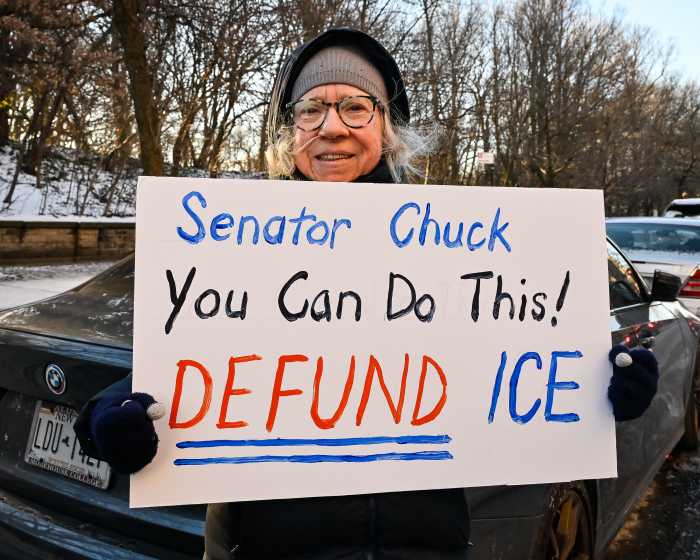 Senator Chuck
You Can Do This!
DEFUND ICE
BMW